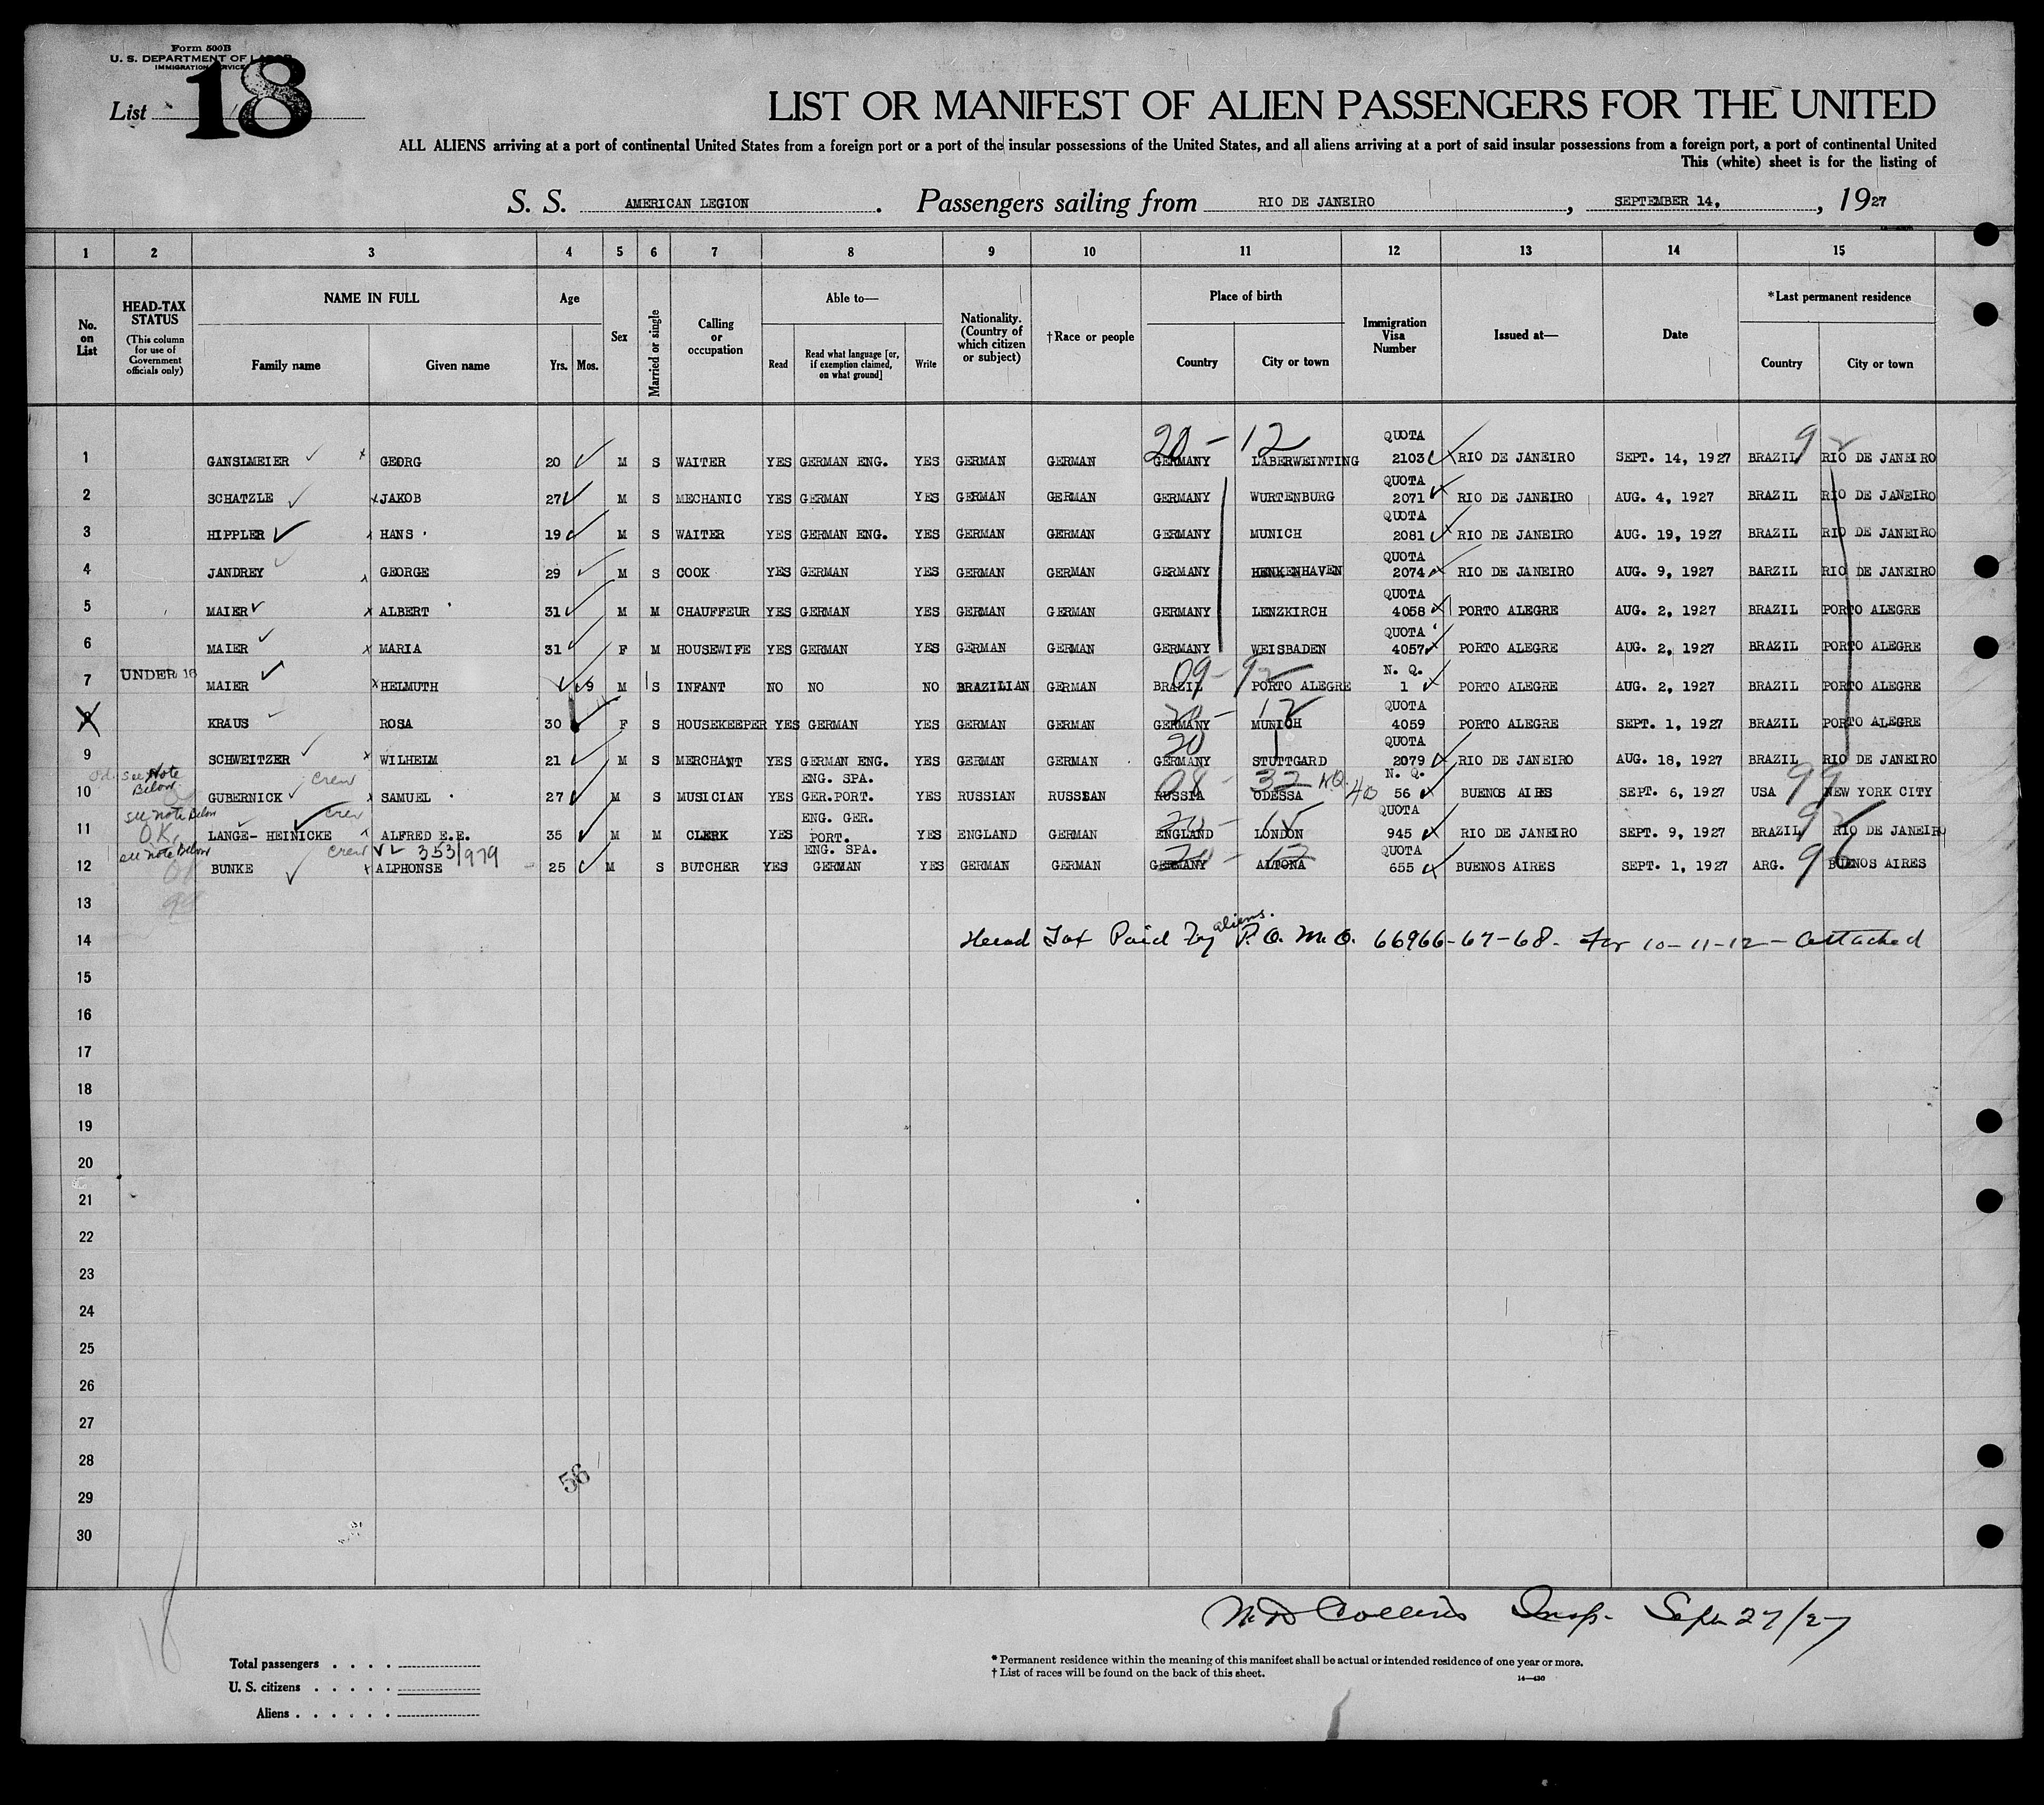 Form 500B
U. S. DEPARTMENT OF LABOR
IMMIGRATION SERVICE
List 18
LIST OR MANIFEST OF ALIEN PASSENGERS FOR THE UNITED
ALL ALIENS arriving at a port of continental United States from a foreign port or a port of the insular possessions of the United States, and all aliens arriving at a port of said insular possessions from a foreign port, a port of continental United
This (white) sheet is for the listing of
S. S. AMERICAN LEGION. Passengers sailing from RIO DE JANEIRO, SEPTEMBER 14, , 1927
1 2 3 4 5 6 7 8 9 10 11 12 13 14 15
No. on List
HEAD-TAX STATUS (This column for use of Government officials only)
NAME IN FULL Family name Given name
Age Yrs. Mos.
Sex
Married or single
Calling or occupation
Able to— Read Read what language [or, if exemption claimed, on what ground] Write
Nationality. (Country of which citizen or subject)
†Race or people
Place of birth Country City or town
Immigration Visa Number
Issued at—
Date
*Last permanent residence Country City or town
20 - 12 QUOTA 92
1 GANSLMEIER GEORG 20 M S WAITER YES GERMAN ENG. YES GERMAN GERMAN GERMANY LABERWEINTING 2103 RIO DE JANEIRO SEPT. 14, 1927 BRAZIL RIO DE JANEIRO
QUOTA
2 SCHATZLE JAKOB 27 M S MECHANIC YES GERMAN YES GERMAN GERMAN GERMANY WURTENBURG 2071 RIO DE JANEIRO AUG. 4, 1927 BRAZIL RIO DE JANEIRO
QUOTA
3 HIPPLER HANS 19 M S WAITER YES GERMAN ENG. YES GERMAN GERMAN GERMANY MUNICH 2081 RIO DE JANEIRO AUG. 19, 1927 BRAZIL RIO DE JANEIRO
QUOTA
4 JANDREY GEORGE 29 M S COOK YES GERMAN YES GERMAN GERMAN GERMANY HENKENHAVEN 2074 RIO DE JANEIRO AUG. 9, 1927 BARZIL RIO DE JANEIRO
QUOTA
5 MAIER ALBERT 31 M M CHAUFFEUR YES GERMAN YES GERMAN GERMAN GERMANY LENZKIRCH 4058 PORTO ALEGRE AUG. 2, 1927 BRAZIL PORTO ALEGRE
QUOTA
6 MAIER MARIA 31 F M HOUSEWIFE YES GERMAN YES GERMAN GERMAN GERMANY WEISBADEN 4057 PORTO ALEGRE AUG. 2, 1927 BRAZIL PORTO ALEGRE
UNDER 16 09 - 92 N. Q.
7 MAIER HELMUTH 9 M S INFANT NO NO NO BRAZILIAN GERMAN BRAZIL PORTO ALEGRE 1 PORTO ALEGRE AUG. 2, 1927 BRAZIL PORTO ALEGRE
20 - 12 QUOTA
8 KRAUS ROSA 30 F S HOUSEKEEPER YES GERMAN YES GERMAN GERMAN GERMANY MUNICH 4059 PORTO ALEGRE SEPT. 1, 1927 BRAZIL PORTO ALEGRE
20 QUOTA
9 SCHWEITZER WILHELM 21 M S MERCHANT YES GERMAN ENG. YES GERMAN GERMAN GERMANY STUTTGARD 2079 RIO DE JANEIRO AUG. 18, 1927 BRAZIL RIO DE JANEIRO
see Note Below crew ENG. SPA. 08 - 32 N.Q. 99
10 GUBERNICK SAMUEL 27 M S MUSICIAN YES GER.PORT. YES RUSSIAN RUSSIAN RUSSIA ODESSA 56 BUENOS AIRES SEPT. 6, 1927 USA NEW YORK CITY
see note Below crew ENG. GER. QUOTA 92
11 OK LANGE- HEINICKE ALFRED E.E. 35 M M CLERK YES PORT. YES ENGLAND GERMAN ENGLAND LONDON 945 RIO DE JANEIRO SEPT. 9, 1927 BRAZIL RIO DE JANEIRO
see note Below crew VL 353/979 ENG. SPA. 20 - 12 QUOTA 96
12 BUNKE ALPHONSE 25 M S BUTCHER YES GERMAN YES GERMAN GERMAN GERMANY ALTONA 655 BUENOS AIRES SEPT. 1, 1927 ARG. BUENOS AIRES
13
14 Head Tax Paid by aliens. P. O. M. O. 66966-67-68- For 10-11-12- attached
15
16
17
18
19
20
21
22
23
24
25
26
27
28
56
29
30
N. D. Collins Insp. Sept 27/27
18
Total passengers
U. S. citizens
Aliens
* Permanent residence within the meaning of this manifest shall be actual or intended residence of one year or more.
† List of races will be found on the back of this sheet.
14—430